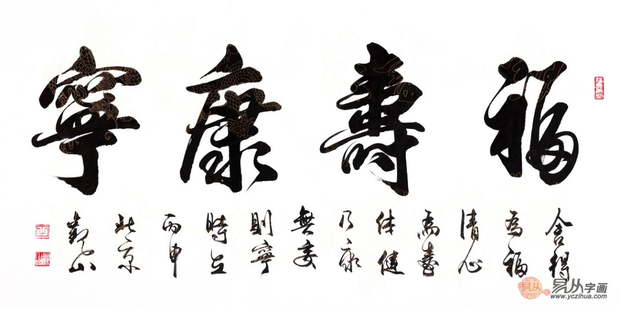 福壽康寧
舍得
為福
清心
為壽
体健
乃康
無妄
則寧
時在
丙申
北京
易从字画
www.yczihua.com